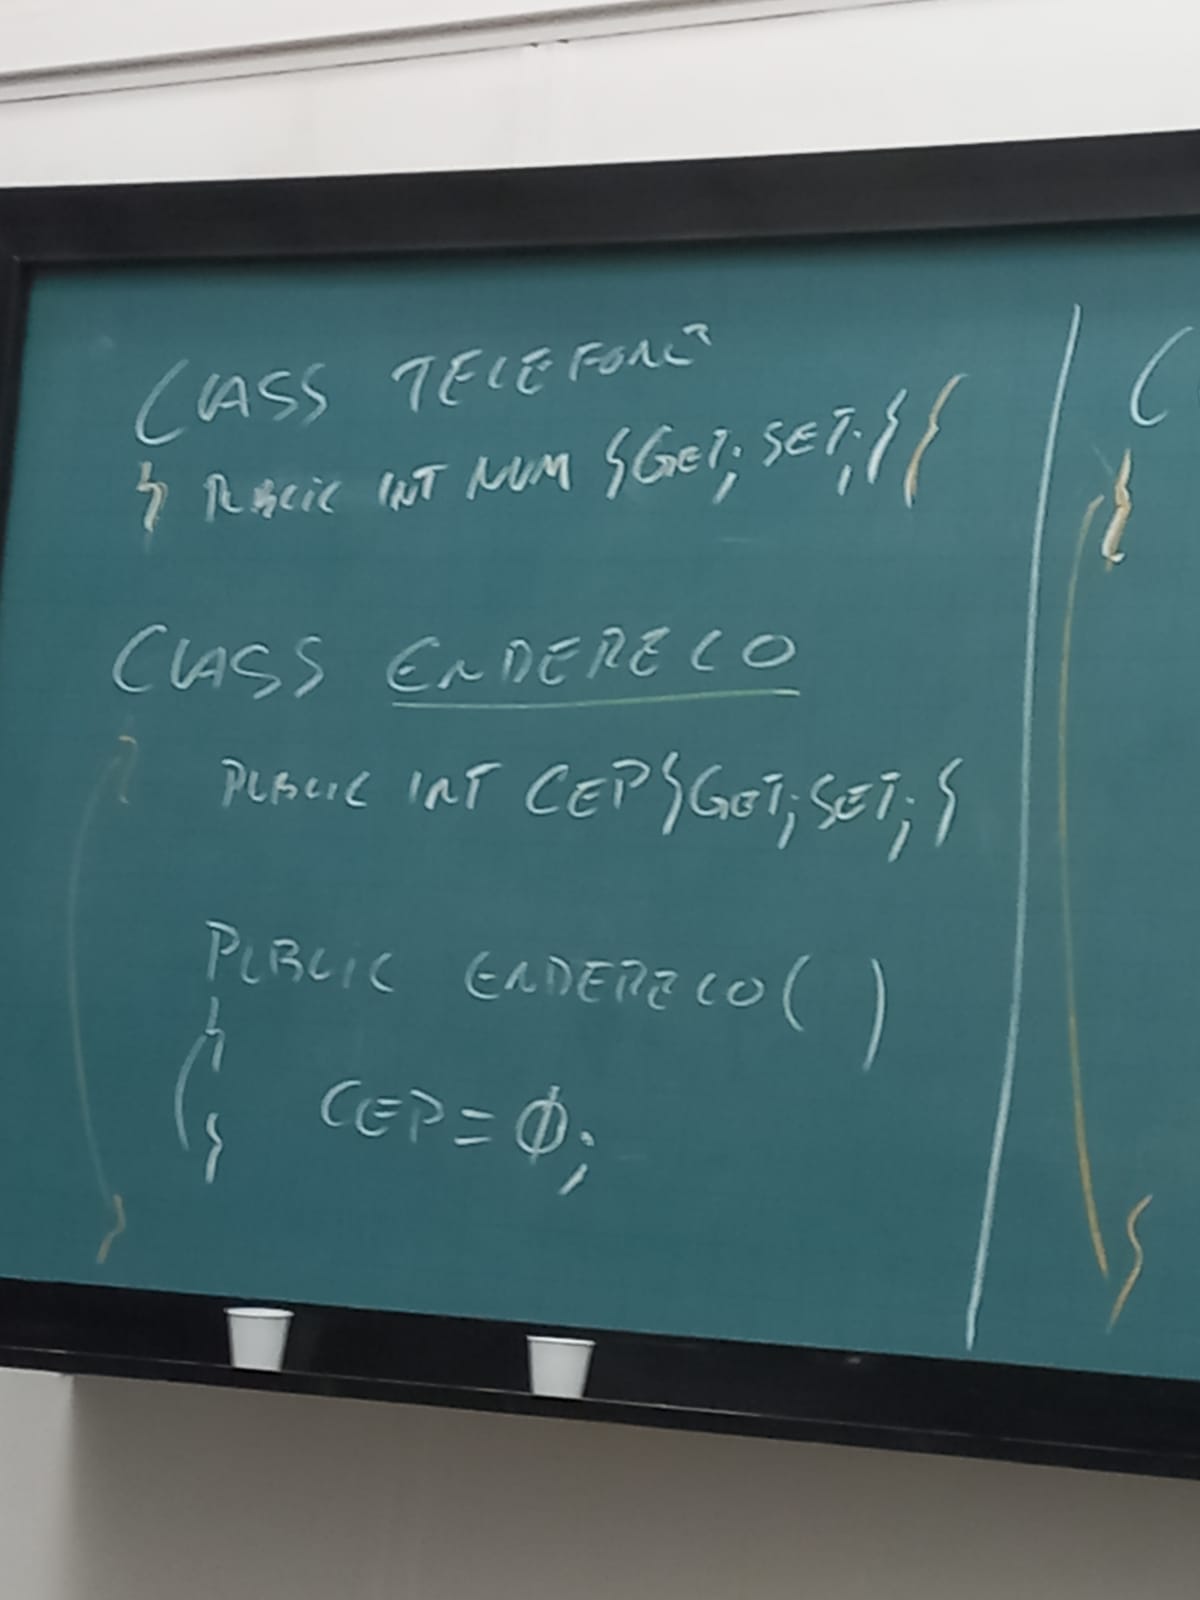 CLASS TELEFONE
{ PUBLIC INT NUM {GET; SET;} }
CLASS ENDERECO
{
PUBLIC INT CEP{GET; SET;}
PUBLIC ENDERECO( )
{
CEP = Ø;
}
}
C
{
}